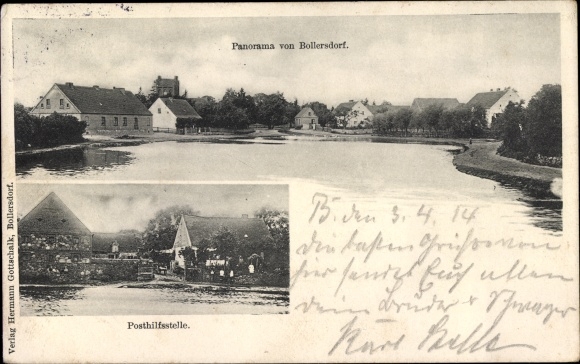 Panorama von Bollersdorf.
Verlag Hermann Gottschalk, Bollersdorf.
Posthilfsstelle.
B. den 3.4.14
Die besten Grüße von
hier sendet Euch allen
dein Bruder & Schwager
Karl